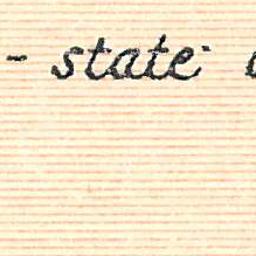 - state